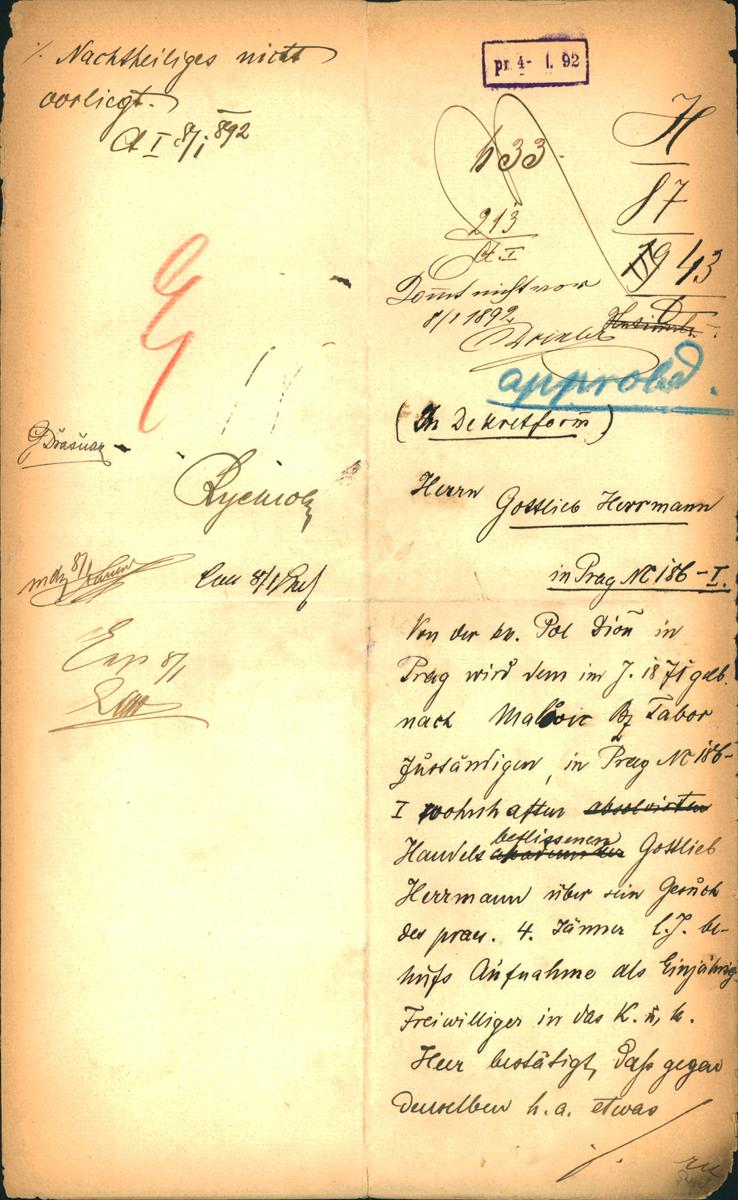 ./. Nachtheiliges nicht
vorliegt.
A I 8/I 892
Rychnov
Exp 8/1
pr. 4- I. 92
H
87
43
633.
213
A I
Kommt nicht vor
8/1 1892
approbed.
(In Dekretform)
Herrn
Gottlieb Herrmann
in Prag NC 186-I.
Von der kk. Pol Dion in
Prag wird dem im J. 1871 geb.
nach Bz Tabor
zuständigen, in Prag NC 186-
I wohnhaften absolvirten
beflissenen
Handels Gottlieb
Herrmann über sein Gesuch
des praes. 4. Jänner l. J. be-
hufs Aufnahme als Einjährig
Freiwilliger in das K. u. k.
Heer bestätigt, daß gegen
denselben h. a. etwas
./.